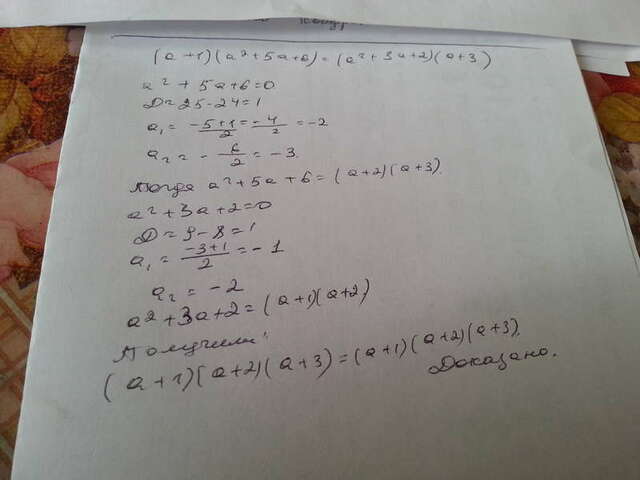 (a+1)(a²+5a+6)=(a²+3a+2)(a+3)
a²+5a+6=0
D=25-24=1
a₁= (-5+1)/2 = -4/2 = -2
a₂= - 6/2 = -3.
Тогда a²+5a+6=(a+2)(a+3).
a²+3a+2=0
D=9-8=1
a₁= (-3+1)/2 = -1
a₂= -2
a²+3a+2=(a+1)(a+2)
Получили:
(a+1)(a+2)(a+3)=(a+1)(a+2)(a+3).
Доказано.